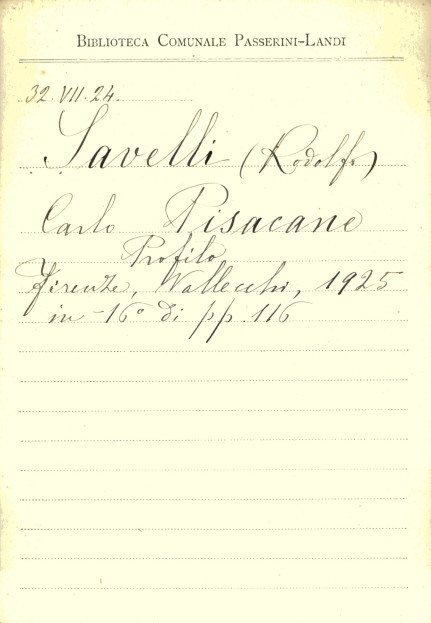 BIBLIOTECA COMUNALE PASSERINI-LANDI
32.VII.24.
Savelli (Rodolfo)
Carlo Pisacane
Profilo
Firenze, Vallecchi, 1925
in-16° di pp. 116